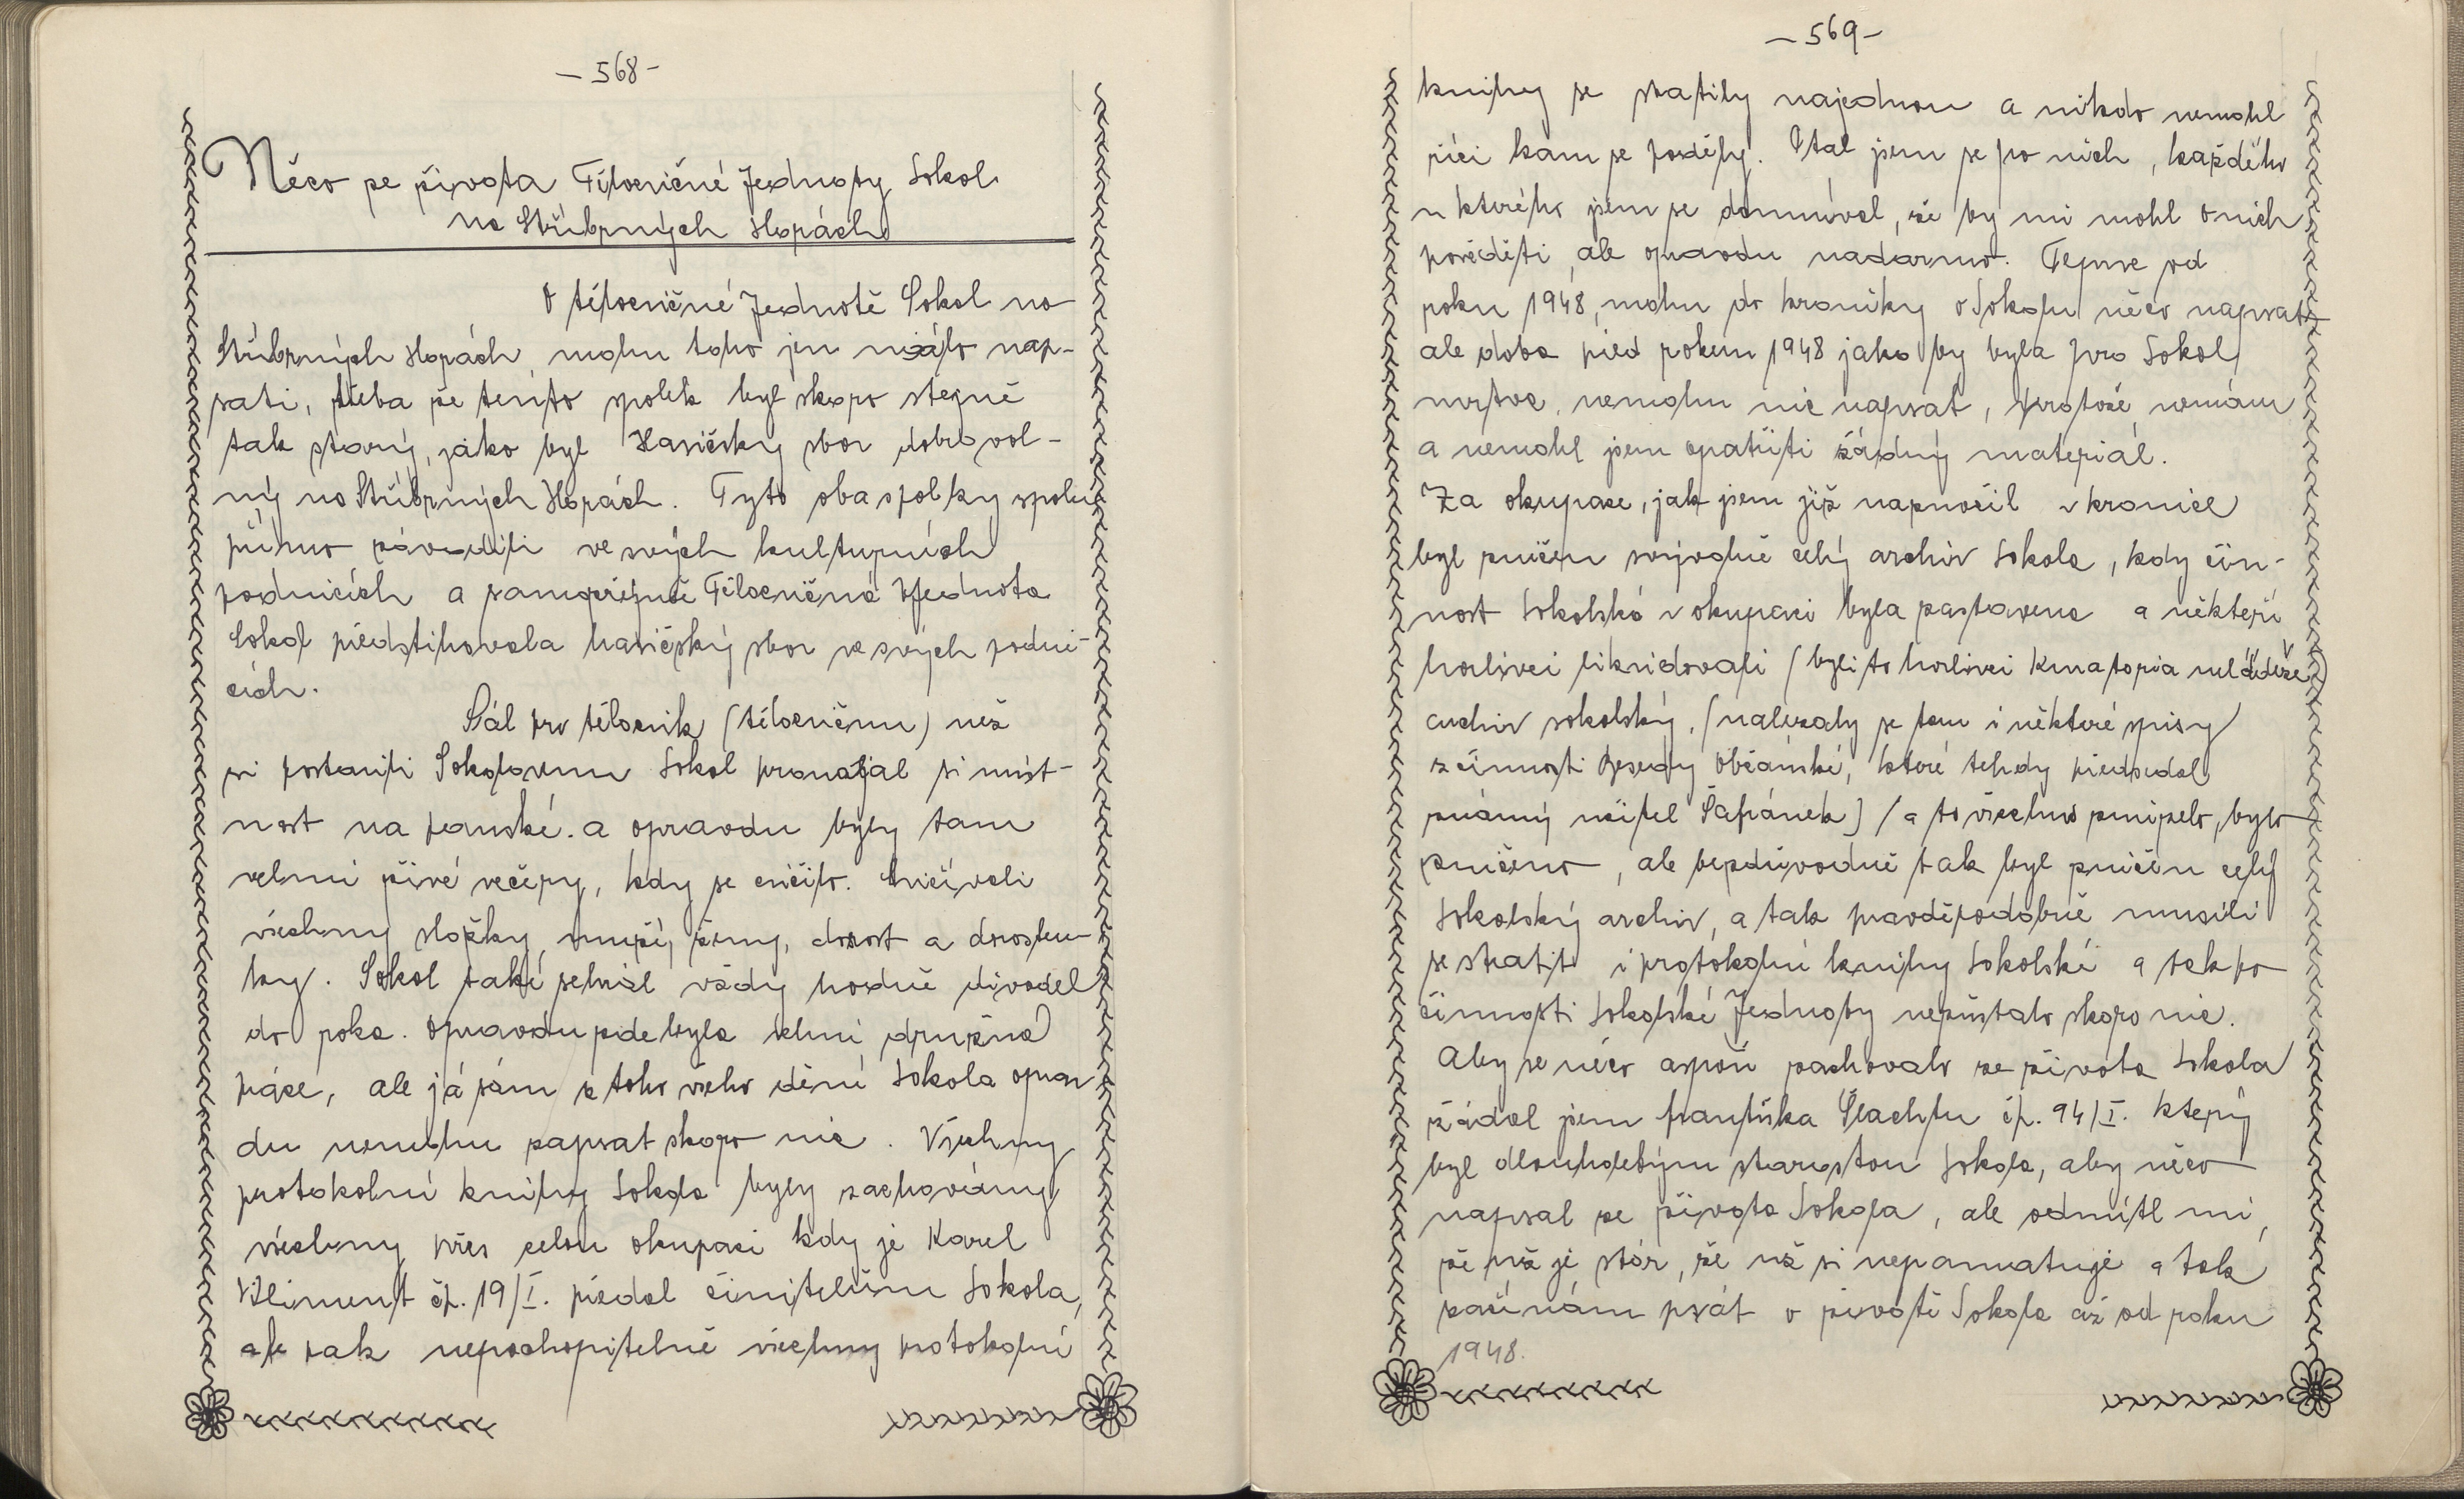 – 568 –
Něco ze života Tělocvičné Jednoty Sokol
na Stříbrných Horách
O tělocvičné Jednotě Sokol na
Stříbrných Horách, mohu toho jen málo nap-
sati, třeba že tento spolek byl skoro stejně
tak starý, jako byl Hasičský sbor dobrovol-
ný na Stříbrných Horách. Tyto oba spolky spolu
přímo závodili ve svých kulturních
podnicích a samozřejmě Tělocvičná Jednota
Sokol předstihovala hasičský sbor ve svých podni-
cích.
Sál pro tělocvik (tělocvičnu) než
si postavili Sokolovnu Sokol pronajal si míst-
nost na panské. a opravdu byly tam
velmi živé večery, kdy se cvičilo. Cvičívali
všechny složky, muži, ženy, dorost a dorosten-
ky. Sokol také sehrál vždy hodně divadel
do roka. Opravdu zde byla velmi družná
práce, ale já sám z toho všeho dění Sokola oprav
du nemohu zapsat skoro nic. Všechny
protokolní knihy Sokola byly zachovány
všechny přes celou okupaci kdy je Karel
Kliment čp. 19/I. předal činitelům Sokola,
ale pak nepochopitelně všechny protokolní
– 569 –
knihy se ztratily najednou a nikdo nemohl
říci kam se poděly. Ptal jsem se po nich, každého
u kterého jsem se domníval, že by mi mohl o nich
pověděti, ale opravdu nadarmo. Teprve od
roku 1948, mohu do kroniky o Sokolu něco napsat,
ale doba před rokem 1948 jako by byla pro Sokol
mrtva, nemohu nic napsat, protože nemám
a nemohl jsem opatřiti žádný materiál.
Za okupace, jak jsem již napsal v kronice
byl zničen svévolně celý archiv Sokola, kdy čin-
nost Sokolská v okupaci byla zastavena a někteří
horlivci likvidovali (byli to horlivci Kuratoria mládeže)
archiv sokolský, (nalézaly se tam i některé spisy
z činnosti Besedy Občanské, které tehdy předsedal
známý učitel Šafránek) / a to všechno zmizelo, bylo
zničeno, ale bezdůvodně tak byl zničen celý
Sokolský archiv, a tak pravděpodobně musili
se ztratit i protokolní knihy Sokolské a tak po
činnosti Sokolské Jednoty nezůstalo skoro nic.
Aby se něco aspoň zachovalo ze života Sokola
žádal jsem Františka Šlachtu čp. 94/I. který
byl dlouholetým starostou Sokola, aby něco
napsal ze života Sokola, ale odmítl mi,
že už je stár, že už si nepamatuje a tak
začínám psát o životě Sokola až od roku
1948.